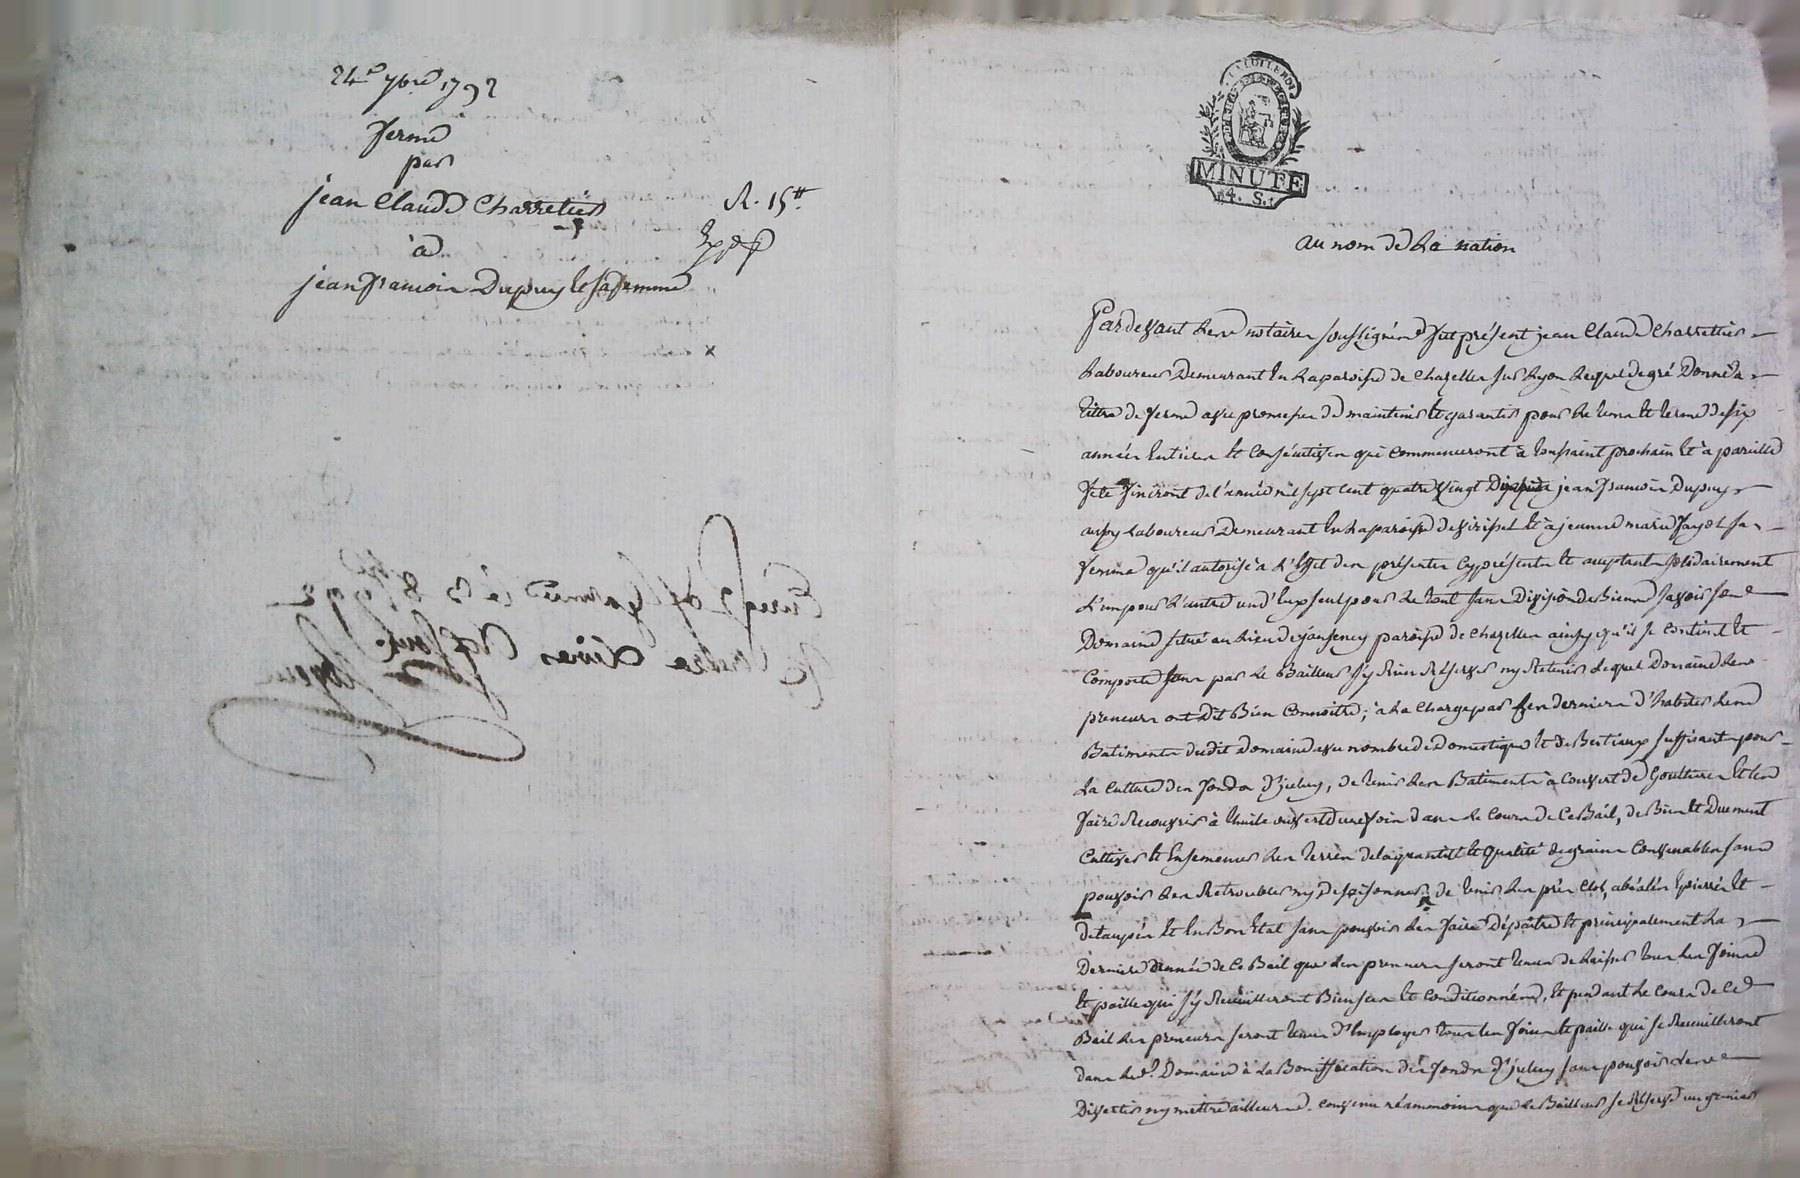 24e 7bre 1792
ferme
par
jean Claude Charretier
à
jean francois Dupuy et sa femme
R. 15#
Expd
LA LOI ET LE ROI
MINUTE
4. S.
au nom de La nation
Pardevant Les notaires soussignés fut présent jean Claude Charrettier
Laboureur Demeurant en La paroisse de Chazelles sur Lyon Lequel de gré Donne à
titre de ferme avec promesse de maintenir et garantir pour Le tems et terme de six
années entieres et Consécutives qui Commenceront à toussaint prochain et à pareille
fete finiront de l'année mil sept cent quatre vingt Dixhuit à jean francois Dupuy
aussy Laboureur Demeurant en La paroisse de et à jeanne marie fayot sa
femme qu'il autorise à L'effet des présentes cy présents et acceptants solidairement
L'un pour L'autre un d'eux seul pour Le tout sans Division de Biens savoir son
Domaine situé au Lieu de paroisse de Chazelles ainsy qu'il se Contient et
Comporte sans par Le Bailleur s'y Rien Réserver ny Retenir Lequel Domaine Les
preneurs ont dit Bien Connoitre; à La Charge par Ces derniers d'habiter Les
Batiments dudit Domaine avec nombre de Domestiques et de Bestiaux suffisants pour
La Culture des fonds d'iceluy, de tenir Les Batiments à Couvert de Goutieres et Les
faire Recouvrir à thuile ouverte une fois dans Le Cours de Ce Bail, de Bien et Duement
Cultiver et Ensemencer Les terres de la quantité et qualité de grains Convenables sans
pouvoir Les Retroubler ny Dessaisonner, de tenir Les prés Clos, abéalés épierrés et
détaupés et En Bon Etat sans pouvoir Les faire Dépaitre et principalement La
Derniere année de Ce Bail que Les preneurs seront tenus de Laisser tous Les foins
et pailles qui s'y Reeuilleront Bien secs et Conditionnés, et pendant Le Cours de Ce
Bail Les preneurs seront tenus d'Employer tous Les foins et pailles qui se Reeuilleront
dans Led. Domaine à La Bonifification des fonds d'iceluy sans pouvoir Les
Divertir ny mettre ailleurs. Convenu néammoins que Le Bailleur se Réserve un grenier